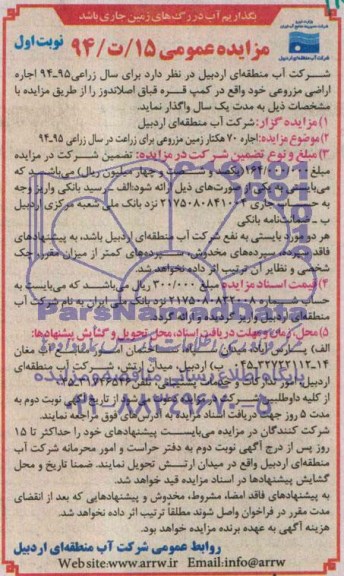 بگذاریم آب در رگ‌های زمین جاری باشد
مزایده عمومی ۱۵/ت/۹۴
نوبت اول
شرکت آب منطقه‌ای اردبیل
شرکت آب منطقه‌ای اردبیل در نظر دارد برای سال زراعی ۹۵-۹۴ اجاره
اراضی مزروعی خود واقع در کمپ قره قباق اصلاندوز را از طریق مزایده با
مشخصات ذیل به مدت یک سال واگذار نماید.
۱) مزایده گزار: شرکت آب منطقه‌ای اردبیل
۲) موضوع مزایده: اجاره ۷۰ هکتار زمین مزروعی برای زراعت در سال زراعی ۹۵-۹۴
۳) مبلغ و نوع تضمین شرکت در مزایده: تضمین شرکت در مزایده
مبلغ (یکصد و شصت و چهار میلیون ریال) می‌باشد که
می‌بایست به یکی از صورت‌های ذیل ارائه شود: الف - رسید بانکی واریز وجه
به حساب جاری ۲۱۷۵۰۸۰۸۴۱۰۰۴ نزد بانک ملی شعبه مرکزی اردبیل
ب - ضمانت‌نامه بانکی
هر دو مورد بایستی به نفع شرکت آب منطقه‌ای اردبیل باشد، به پیشنهادهای
فاقد سپرده، سپرده‌های مخدوش، سپرده‌های کمتر از میزان مقرر، چک
شخصی و نظایر آن ترتیب اثر داده نخواهد شد.
۴) قیمت اسناد مزایده: ۳۰۰/۰۰۰ ریال می‌باشد که می‌بایست به
حساب شماره ۲۱۷۵۰۸۰۸۲۲۰۰۸ نزد بانک ملی ایران به نام شرکت آب
منطقه‌ای اردبیل واریز گردیده و ارائه گردد.
۵) محل، زمان و مهلت دریافت اسناد، محل تحویل و گشایش پیشنهادها:
الف) پارس آباد میدان ساختمان امور منابع آب مغان
ب) اردبیل، میدان ارتش، شرکت آب منطقه‌ای
اردبیل
از کلیه داوطلبین از تاریخ آگهی نوبت دوم به
مدت ۵ روز جهت دریافت اسناد مزایده به آدرس‌های فوق مراجعه نمایند.
شرکت کنندگان در مزایده می‌بایست پیشنهادهای خود را حداکثر تا ۱۵
روز پس از درج آگهی نوبت دوم به دفتر حراست و امور محرمانه شرکت آب
منطقه‌ای اردبیل واقع در میدان ارتش تحویل نمایند. ضمنا تاریخ و محل
گشایش پیشنهادها در اسناد مزایده قید خواهد شد.
به پیشنهادهای فاقد امضا، مشروط، مخدوش و پیشنهادهایی که بعد از انقضای
مدت مقرر در فراخوان واصل شوند مطلقا ترتیب اثر داده نخواهد شد.
هزینه آگهی به عهده برنده مزایده خواهد بود.
روابط عمومی شرکت آب منطقه‌ای اردبیل
Website:www.arrw.ir Email:info@arrw.ir